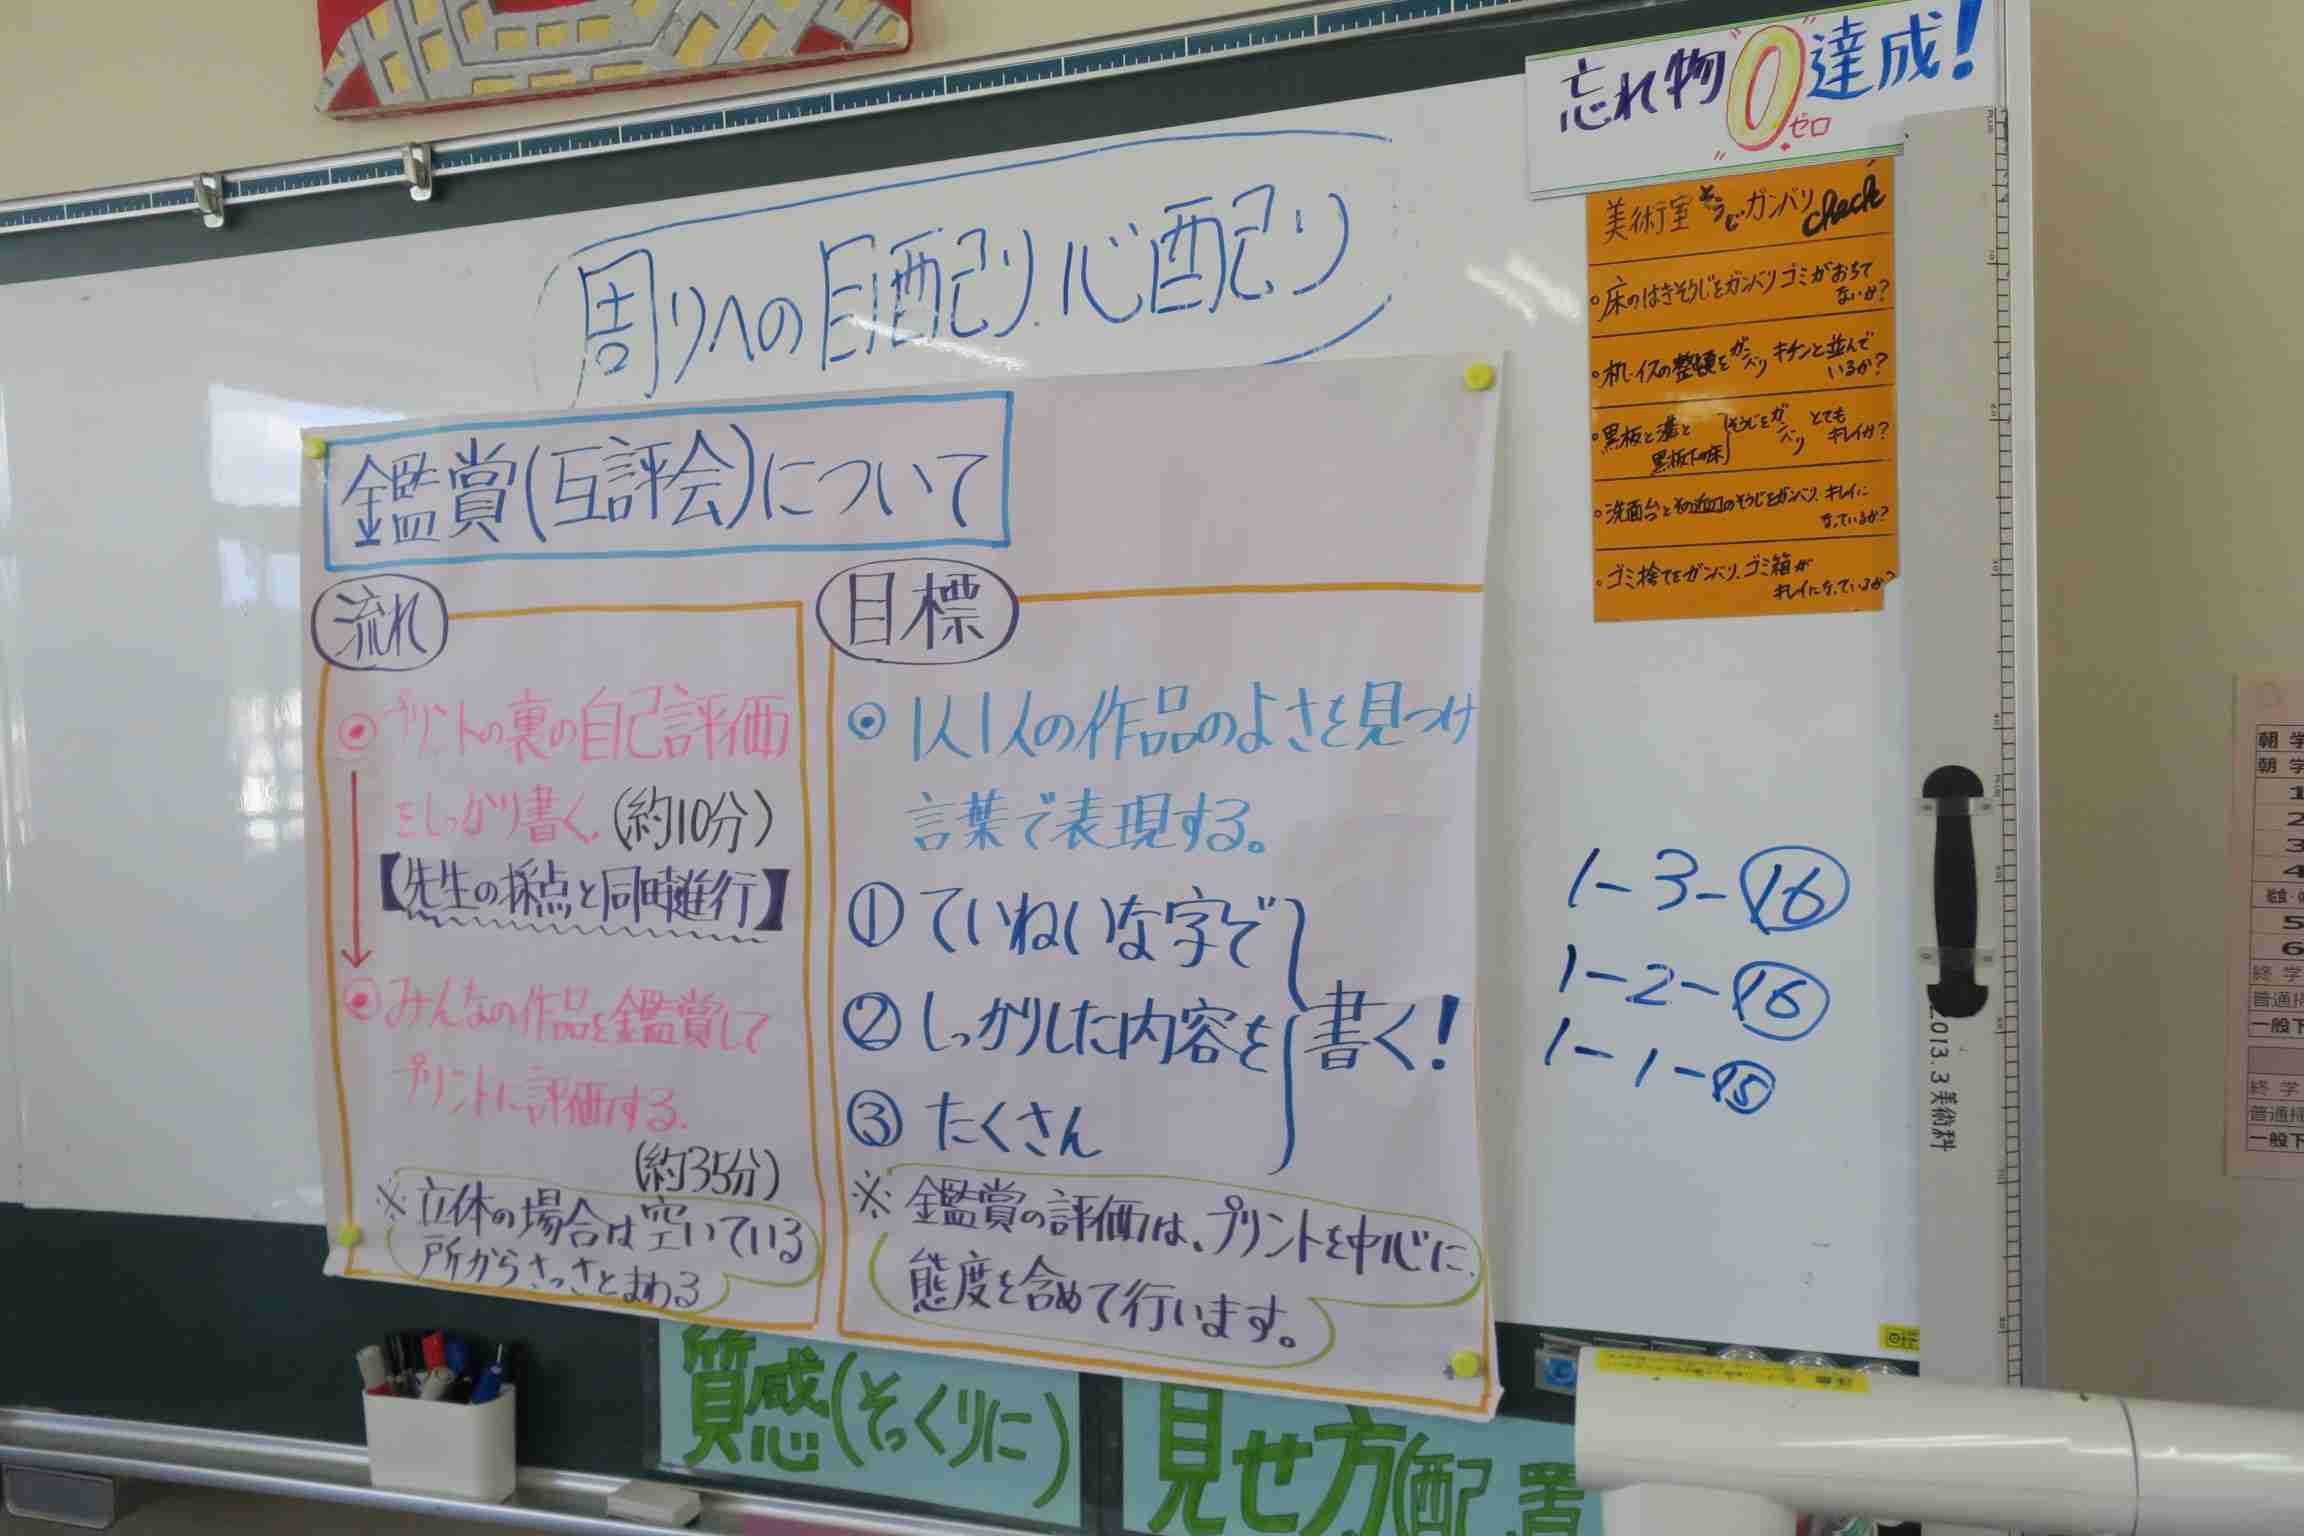 忘れ物"0"達成!
ゼロ
周りへの目配り心配り
美術室そうじガンバリcheck
。床のはきそうじをガンバリゴミがおちて
ないか?
。机・イスの整頓をガンバリキチンと並んで
いるか?
。黒板と溝と
黒板下の床
そうじをガンバリとても
キレイか?
。洗面台とその近辺のそうじをガンバリ、キレイに
なっているか?
。ゴミ捨てをガンバリ、ゴミ箱が
キレイになっているか?
鑑賞(互評会)について
流れ
◎プリントの裏の自己評価
をしっかり書く。(約10分)
【先生の採点と同時進行】
◎みんなの作品を鑑賞して
プリントに評価する。
(約35分)
※立体の場合は空いている
所からさっさとまわる
目標
◎1人1人の作品のよさを見つけ
言葉で表現する。
①ていねいな字で
②しっかりした内容を
③たくさん
書く!
※鑑賞の評価は、プリントを中心に、
態度を含めて行います。
1-3-⑯
1-2-⑯
1-1-⑮
2013.3美術科
質感(そっくりに)
見せ方(配置
朝学
朝学
1
2
3
4
5
6
終学
普通掃
一般下
終学
普通掃
一般下